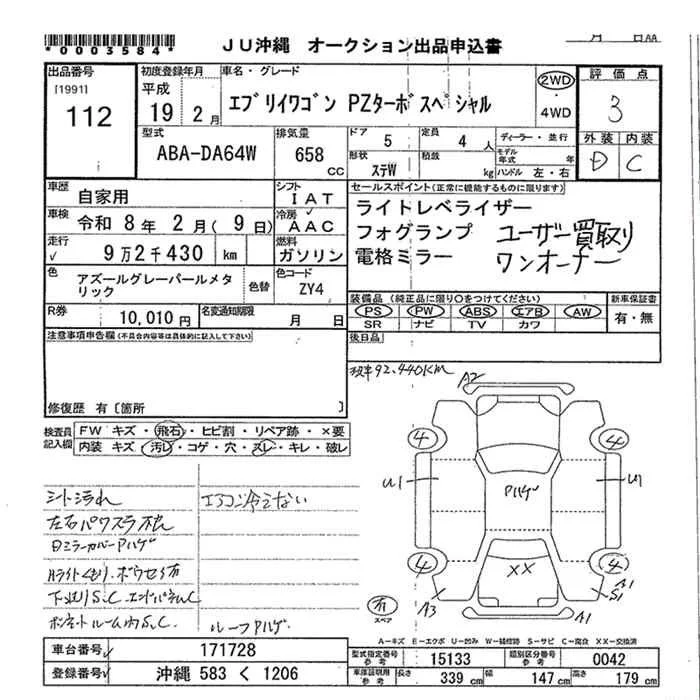 *0003584*
JU沖縄 オークション出品申込書
月 日AA
出品番号
[1991]
112
初度登録年月
平成
19 2月
車名・グレード
エブリイワゴン PZターボスペシャル
2WD
・
4WD
評価点
3
外装 内装
D C
型式
ABA-DA64W
排気量
658
CC
ドア
5
定員
4 人
ディーラー・並行
形状
ステW
積載
kg
モデル年式 年
ハンドル 左・右
車歴
自家用
シフト
IAT
セールスポイント(正常に機能するものに限ります)
ライトレベライザー
フォグランプ
電格ミラー
ユーザー買取り
ワンオーナー
車検
令和 8年 2月( 9日)
冷房
AAC
走行
9万2千430 km
燃料
ガソリン
色
アズールグレーパールメタリック
色替
色コード
ZY4
装備品(純正品に限り○をつけてください)
新車保証書
PS PW ABS エアB AW
SR ナビ TV カワ
有・無
R券
10,010円
名変通知期限
月 日
後日品
注意事項申告欄(不具合内容等は具体的に記入して下さい)
修復歴 有〔箇所 〕
検査員記入欄
FW キズ・飛石・ヒビ割・リペア跡・×要
内装 キズ・汚レ・コゲ・穴・スレ・キレ・破レ
92,440KM
シート汚れ
エアコン冷えない
左右パワスラ
ミラーカバーPハゲ
ルーフPハゲ
A2
4 4
U1 U1
Pハゲ
4 4
XX
A3 A1
S1
A1
有
スペア
A-キズ E-エクボ U-凹み W-補修跡 S-サビ C-腐食 XX-交換済
車台番号
171728
登録番号
沖縄 583 く 1206
型式指定番号
参考
15133
類別区分番号
参考
0042
車庫証明用
参考
長さ
339 cm
幅
147 cm
高さ
179 cm